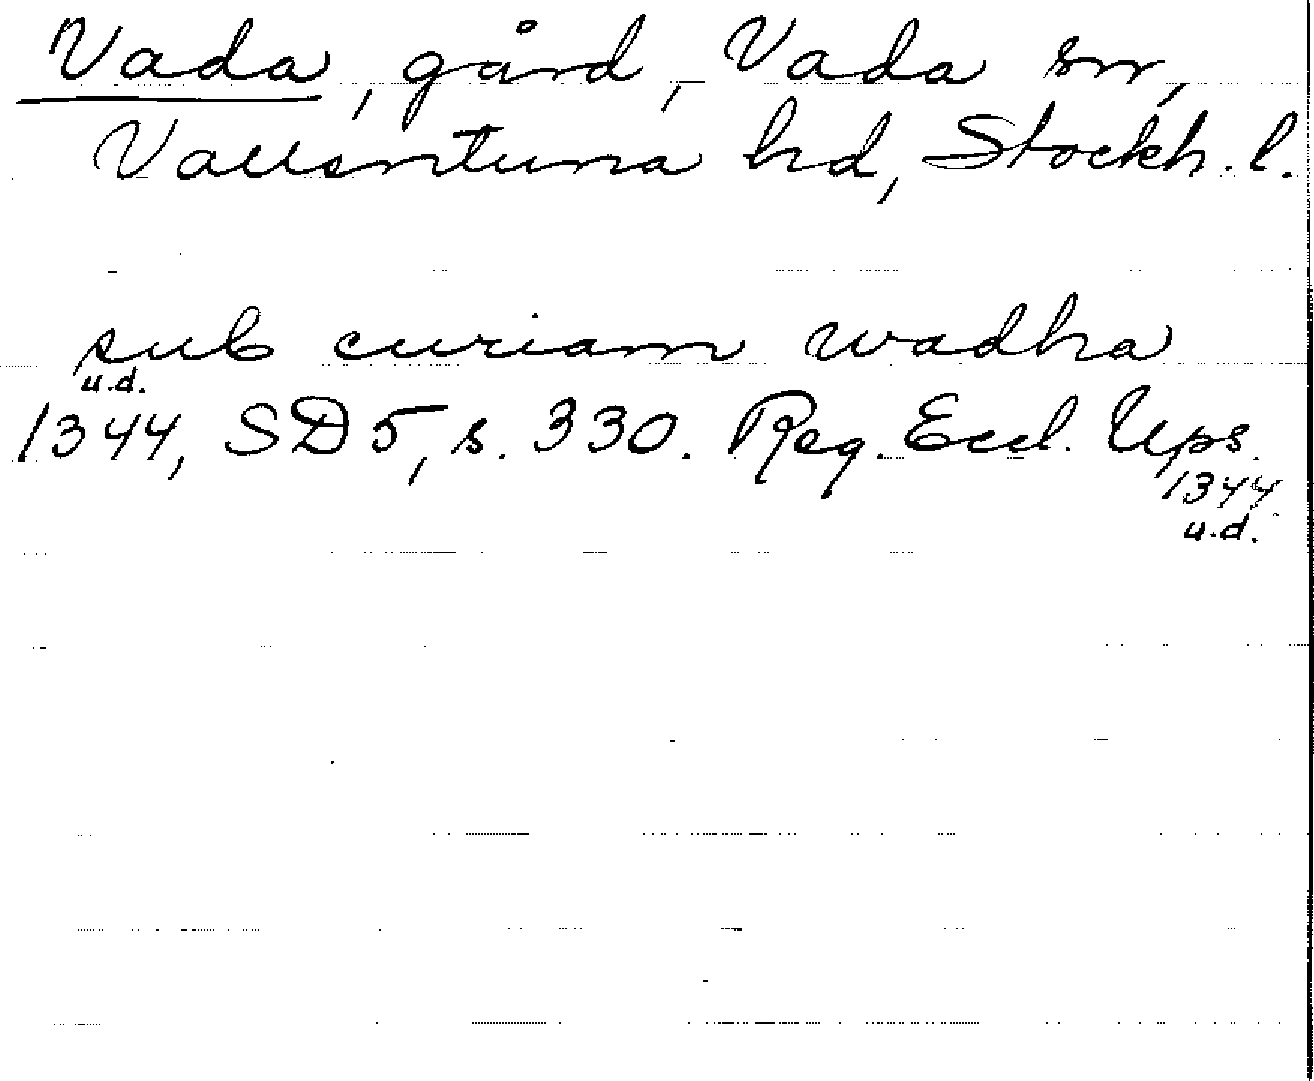 Vada, gård, Vada sn,
Vallentuna hd, Stockh. l.
sub curiam wadha
u.d.
1344, SD 5, s. 330. Reg. Eccl. Ups.
1344
u.d.